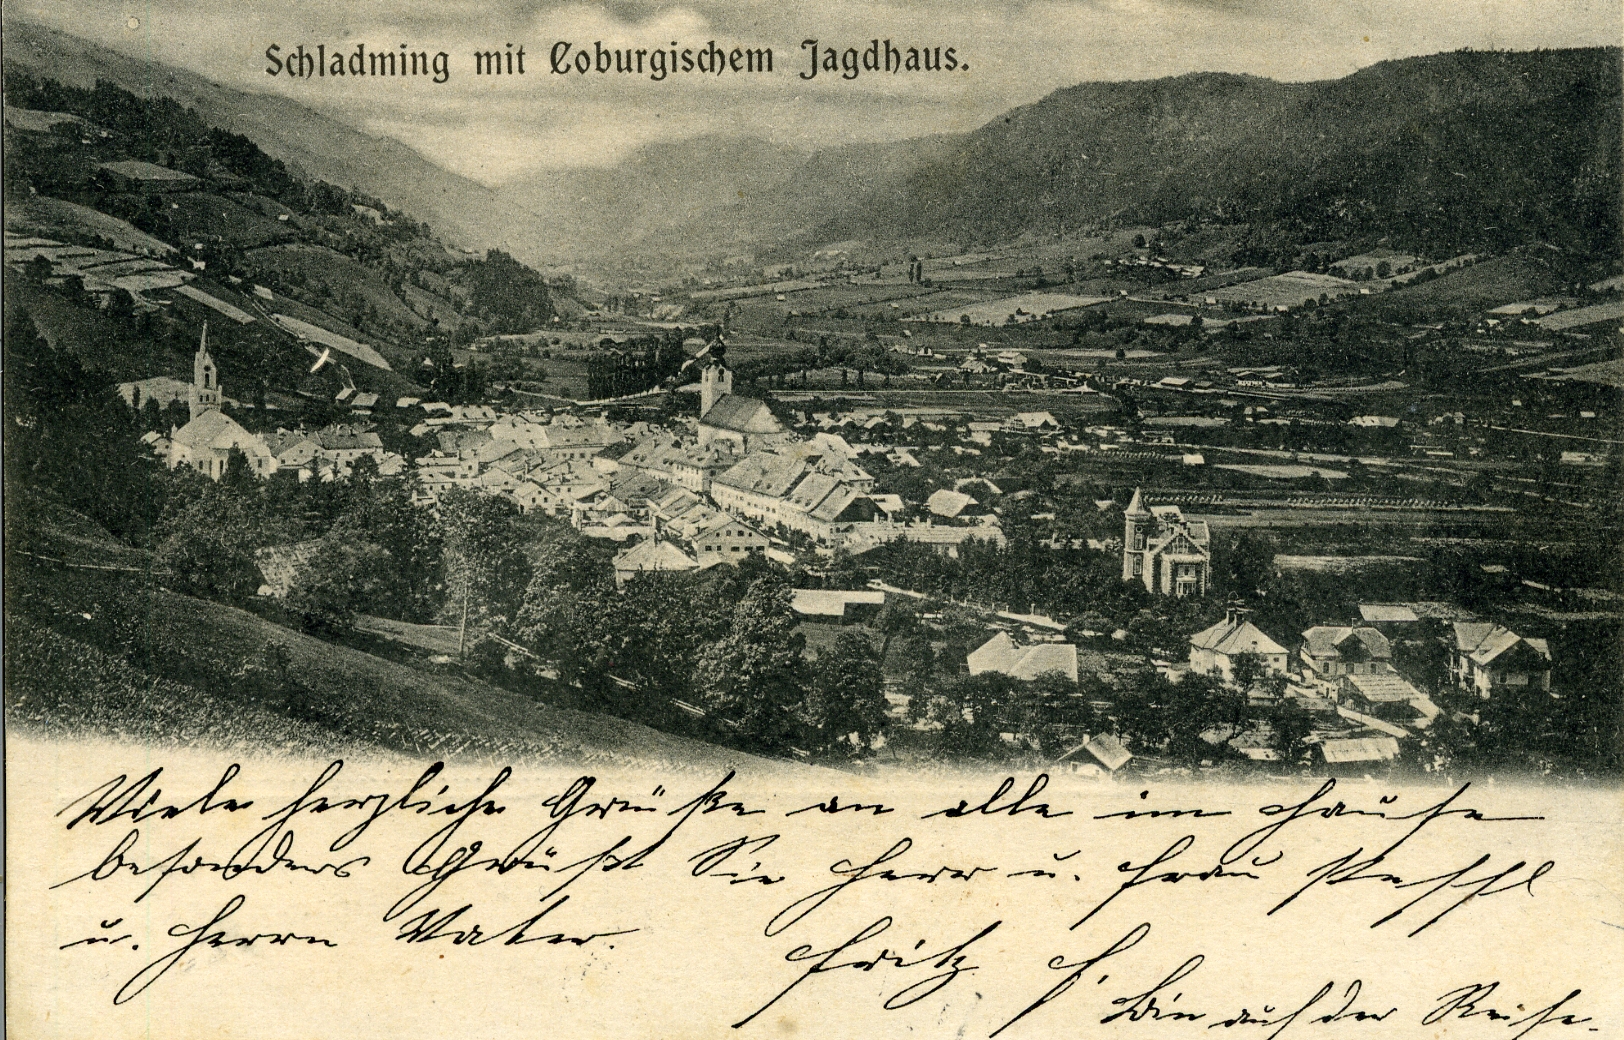 Schladming mit Coburgischem Jagdhaus.
Viele herzliche Grüße an alle im Hause
besonders Grüßt Sie Herr u. Frau
u. Herrn Vater.
Fritz F.
Bin auf der Reise.